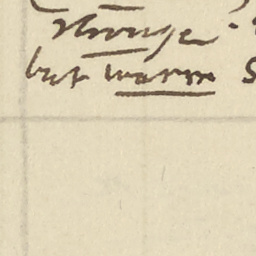 strange
but warm S